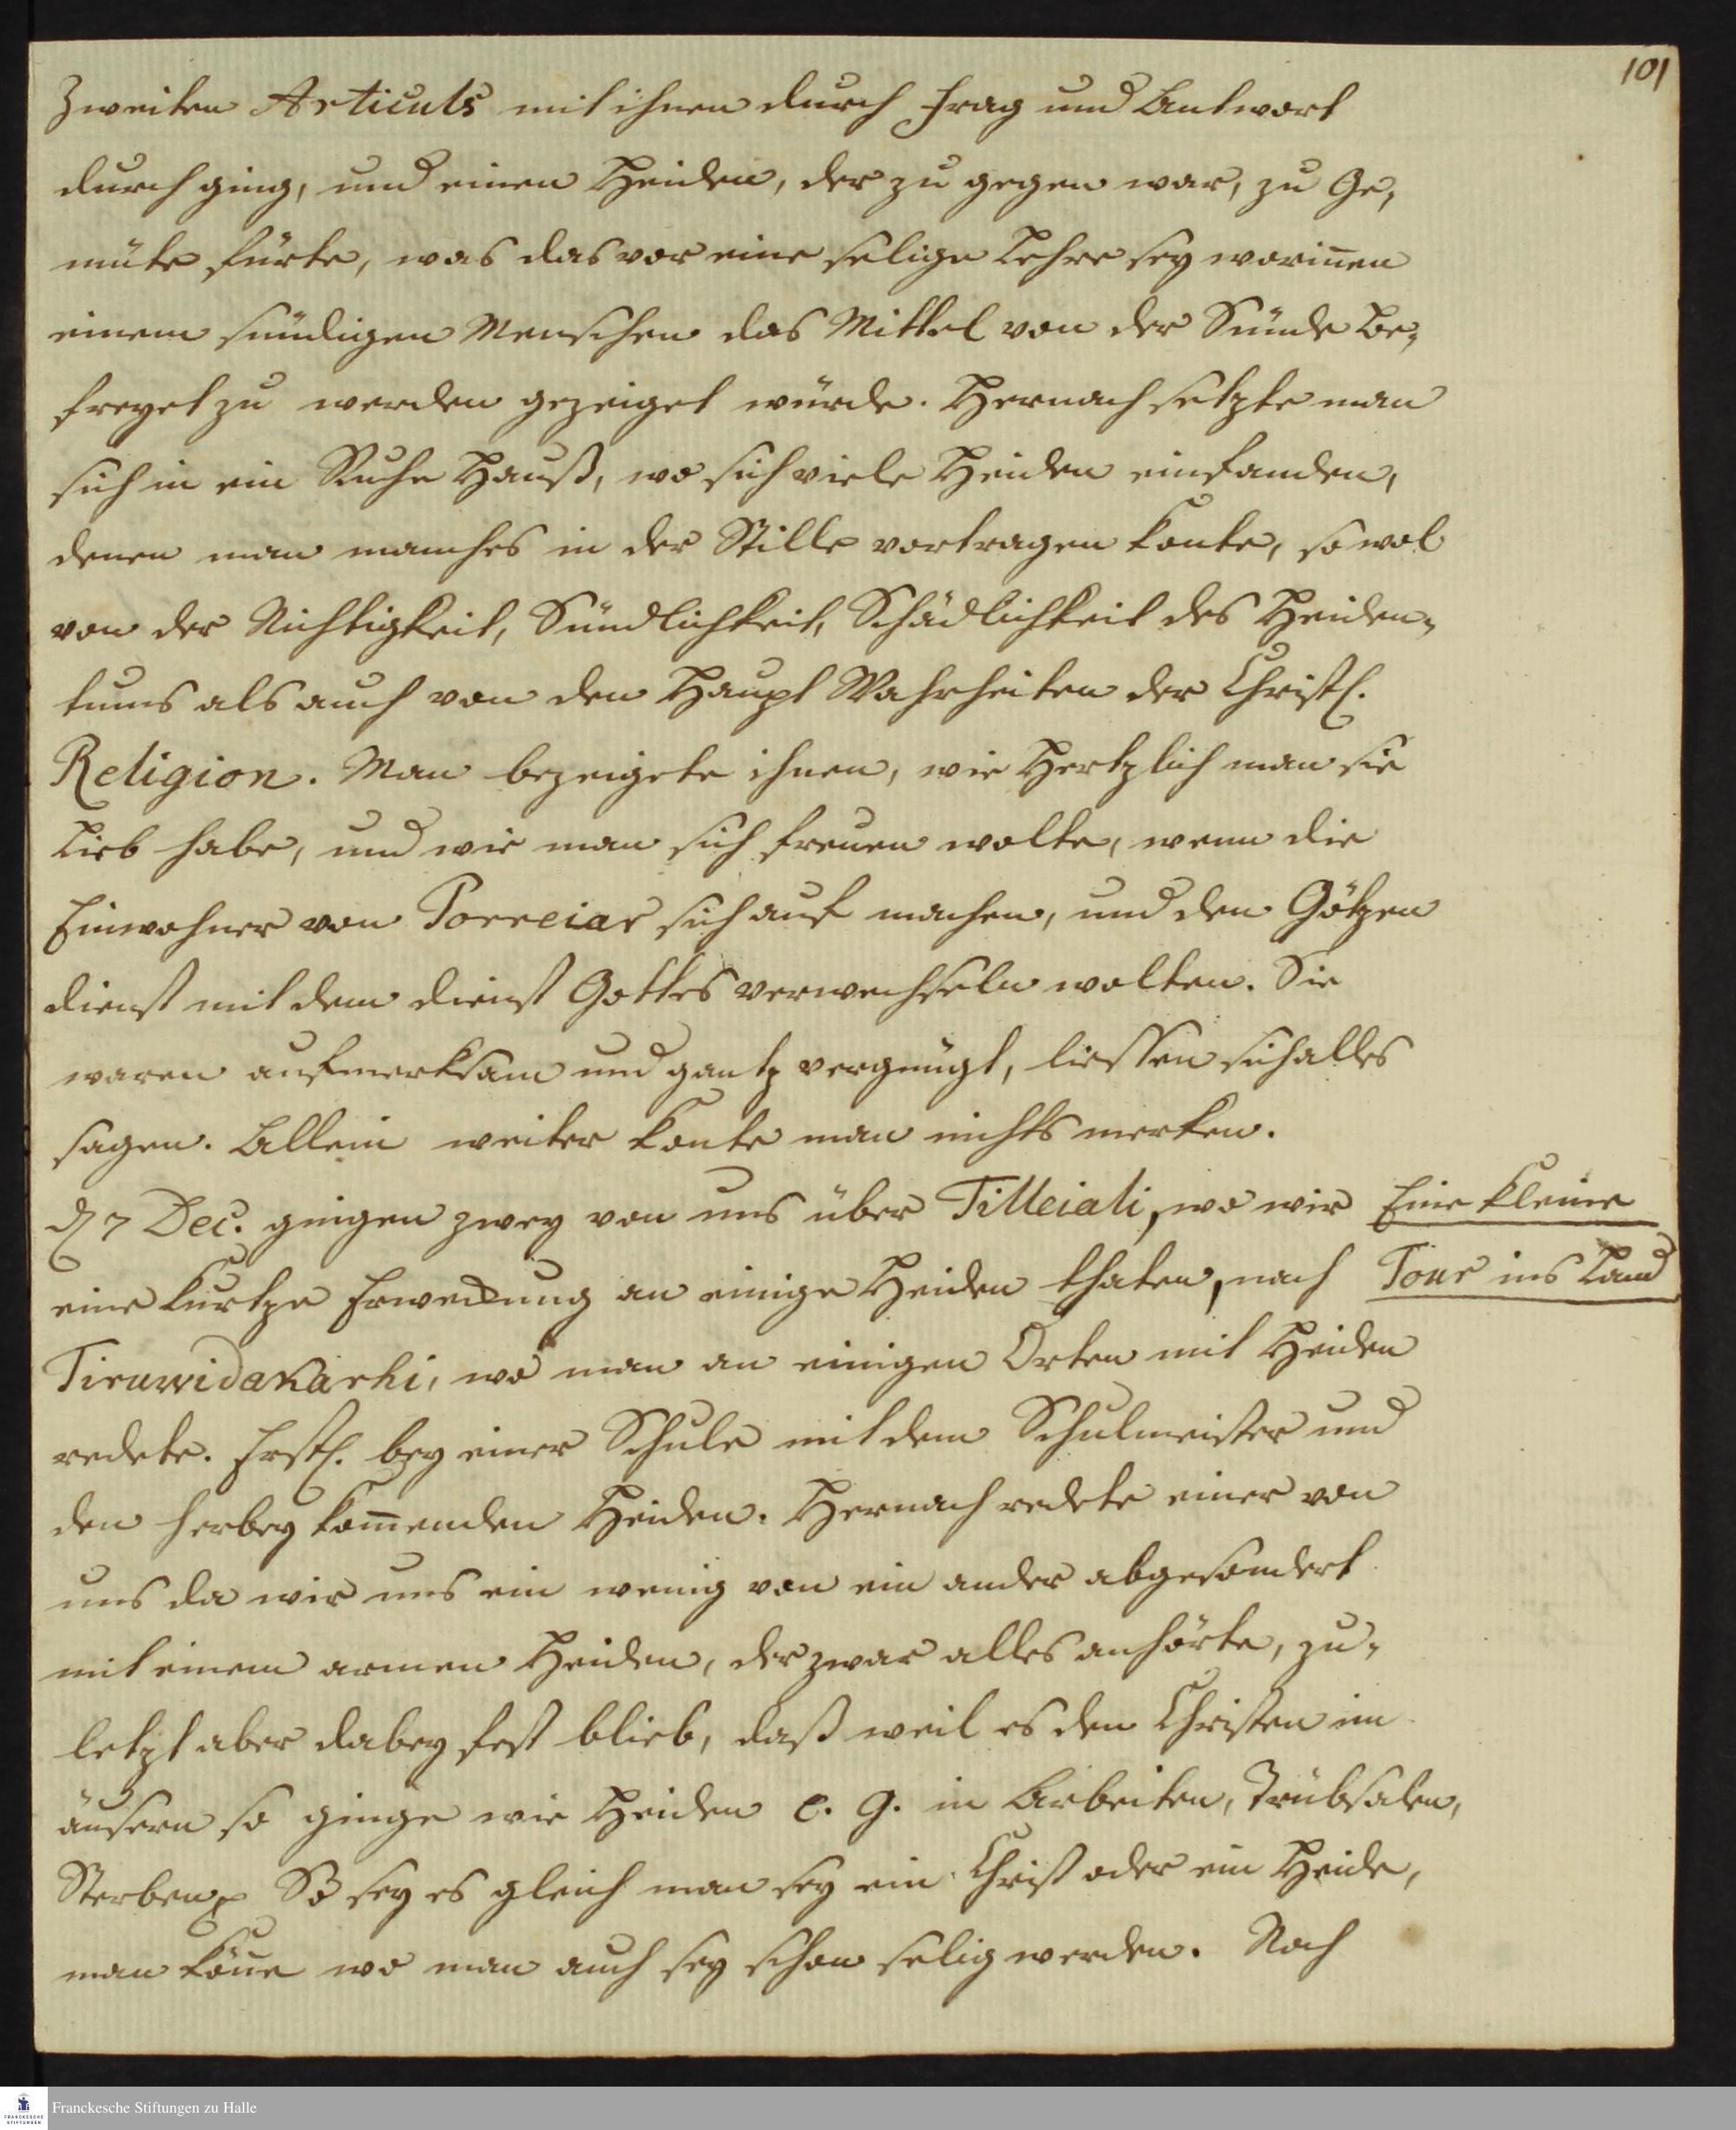 101
Zweiten Articuls mit ihnen durch Frag und Antwort
durch ging, und einen Heiden, der zu gegen war, zu Ge,
müte fürte, was das vor eine selige Lehre sey worin̄en
einem sündigen Menschen das Mittel von der Sünde be,
freyet zu werden gezeiget würde. Hernach setzte man
sich in ein Ruhe Hauß, wo sich viele Heiden einfanden,
denen man manches in der Stille vortragen konte, so wol
von der Nichtigkeit, Sündlichkeit, Schädlichkeit des Heiden„
tums als auch von den Haupt Wahrheiten der Christl.
Religion. Man bezeigete ihnen, wie Hertzlich man sie
Lieb habe, und wie man sich freuen wolte, wenn die
Einwohner von Porreiar sich auf machen, und den Götzen
dienst mit dem dienst Gottes verwechseln wolten. Sie
waren aufmerksam und gantz vergnügt, liessen sich alles
sagen. Allein weiter konte man nichts merken.
d 7 Dec. gingen zwey von uns über Tilleiali, wo wir
Eine kleine
eine kurtze Erweckung an einige Heiden thaten, nach
Tour ins Land
Tiruwidakarhi, wo man an einigen Orten mit Heiden
redete. Erstl. bey einer Schule mit dem Schulmeister und
den herbey kom̄enden Heiden. Hernach redete einer von
uns da wir uns ein wenig von ein ander abgesondert
mit einem armen Heiden, der zwar alles anhörte, zu„
letzt aber dabey fest blieb, daß weil es den Christen im
äusern so ginge wie Heiden e. g. in Arbeiten, Trübsalen,
Sterben So sey es gleich man sey ein Christ oder ein Heide,
man kön̄e wo man auch sey schon selig werden. Noch
Franckesche Stiftungen zu Halle
FRANCKESCHE
STIFTUNGEN